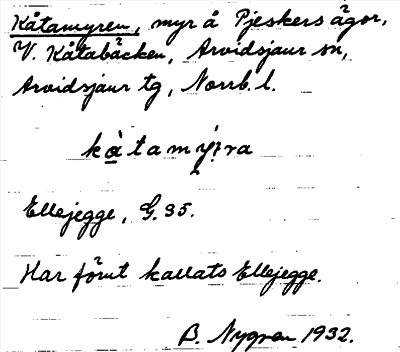 Kåtamyren, myr å Pjeskers ägor,
V. Kåtabäcken, Arvidsjaur sn,
Arvidsjaur tg, Norrb. l.
kàtamýra
Ellejegge, G. 35.
Har förut kallats Ellejegge.
B. Nygren 1932.